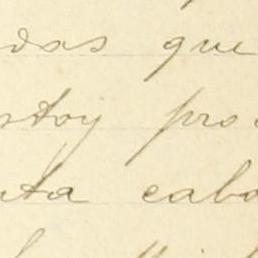 das que
stoy pro
nta cabo